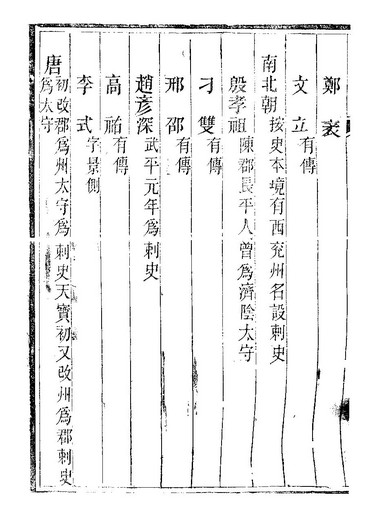 鄭袤
文立有傳
南北朝按史本境有西兗州名設刺史
殷孝祖陳郡長平人曾爲濟陰太守
刁雙有傳
邢邵有傳
趙彥深武平元年爲刺史
高祐有傳
李式字景則
唐初改郡爲州太守爲刺史天寶初又改州爲郡刺史
爲太守